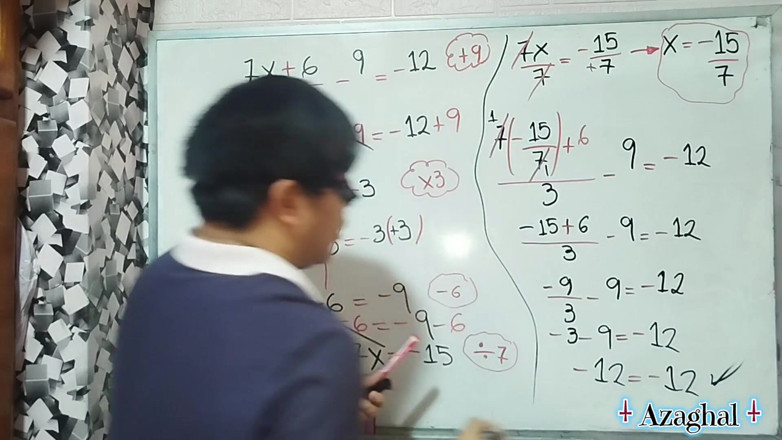 7x + 6 - 9 = -12 +9
= -12 + 9
3 ×3
= -3(+3)
6 = -9 -6
-6 = -9 - 6
7x = -15 ÷7
7x/7 = -15/+7 → x = -15/7
7(-15/7) + 6
3 - 9 = -12
-15+6/3 - 9 = -12
-9/3 - 9 = -12
-3 - 9 = -12
-12 = -12 ✓
Azaghal